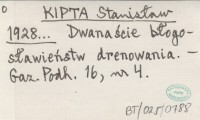 o
KIPTA Stanisław
1928... Dwanaście błogo-
sławieństw drenowania. -
Gaz. Podh. 16, nr 4.
BT/025/0788